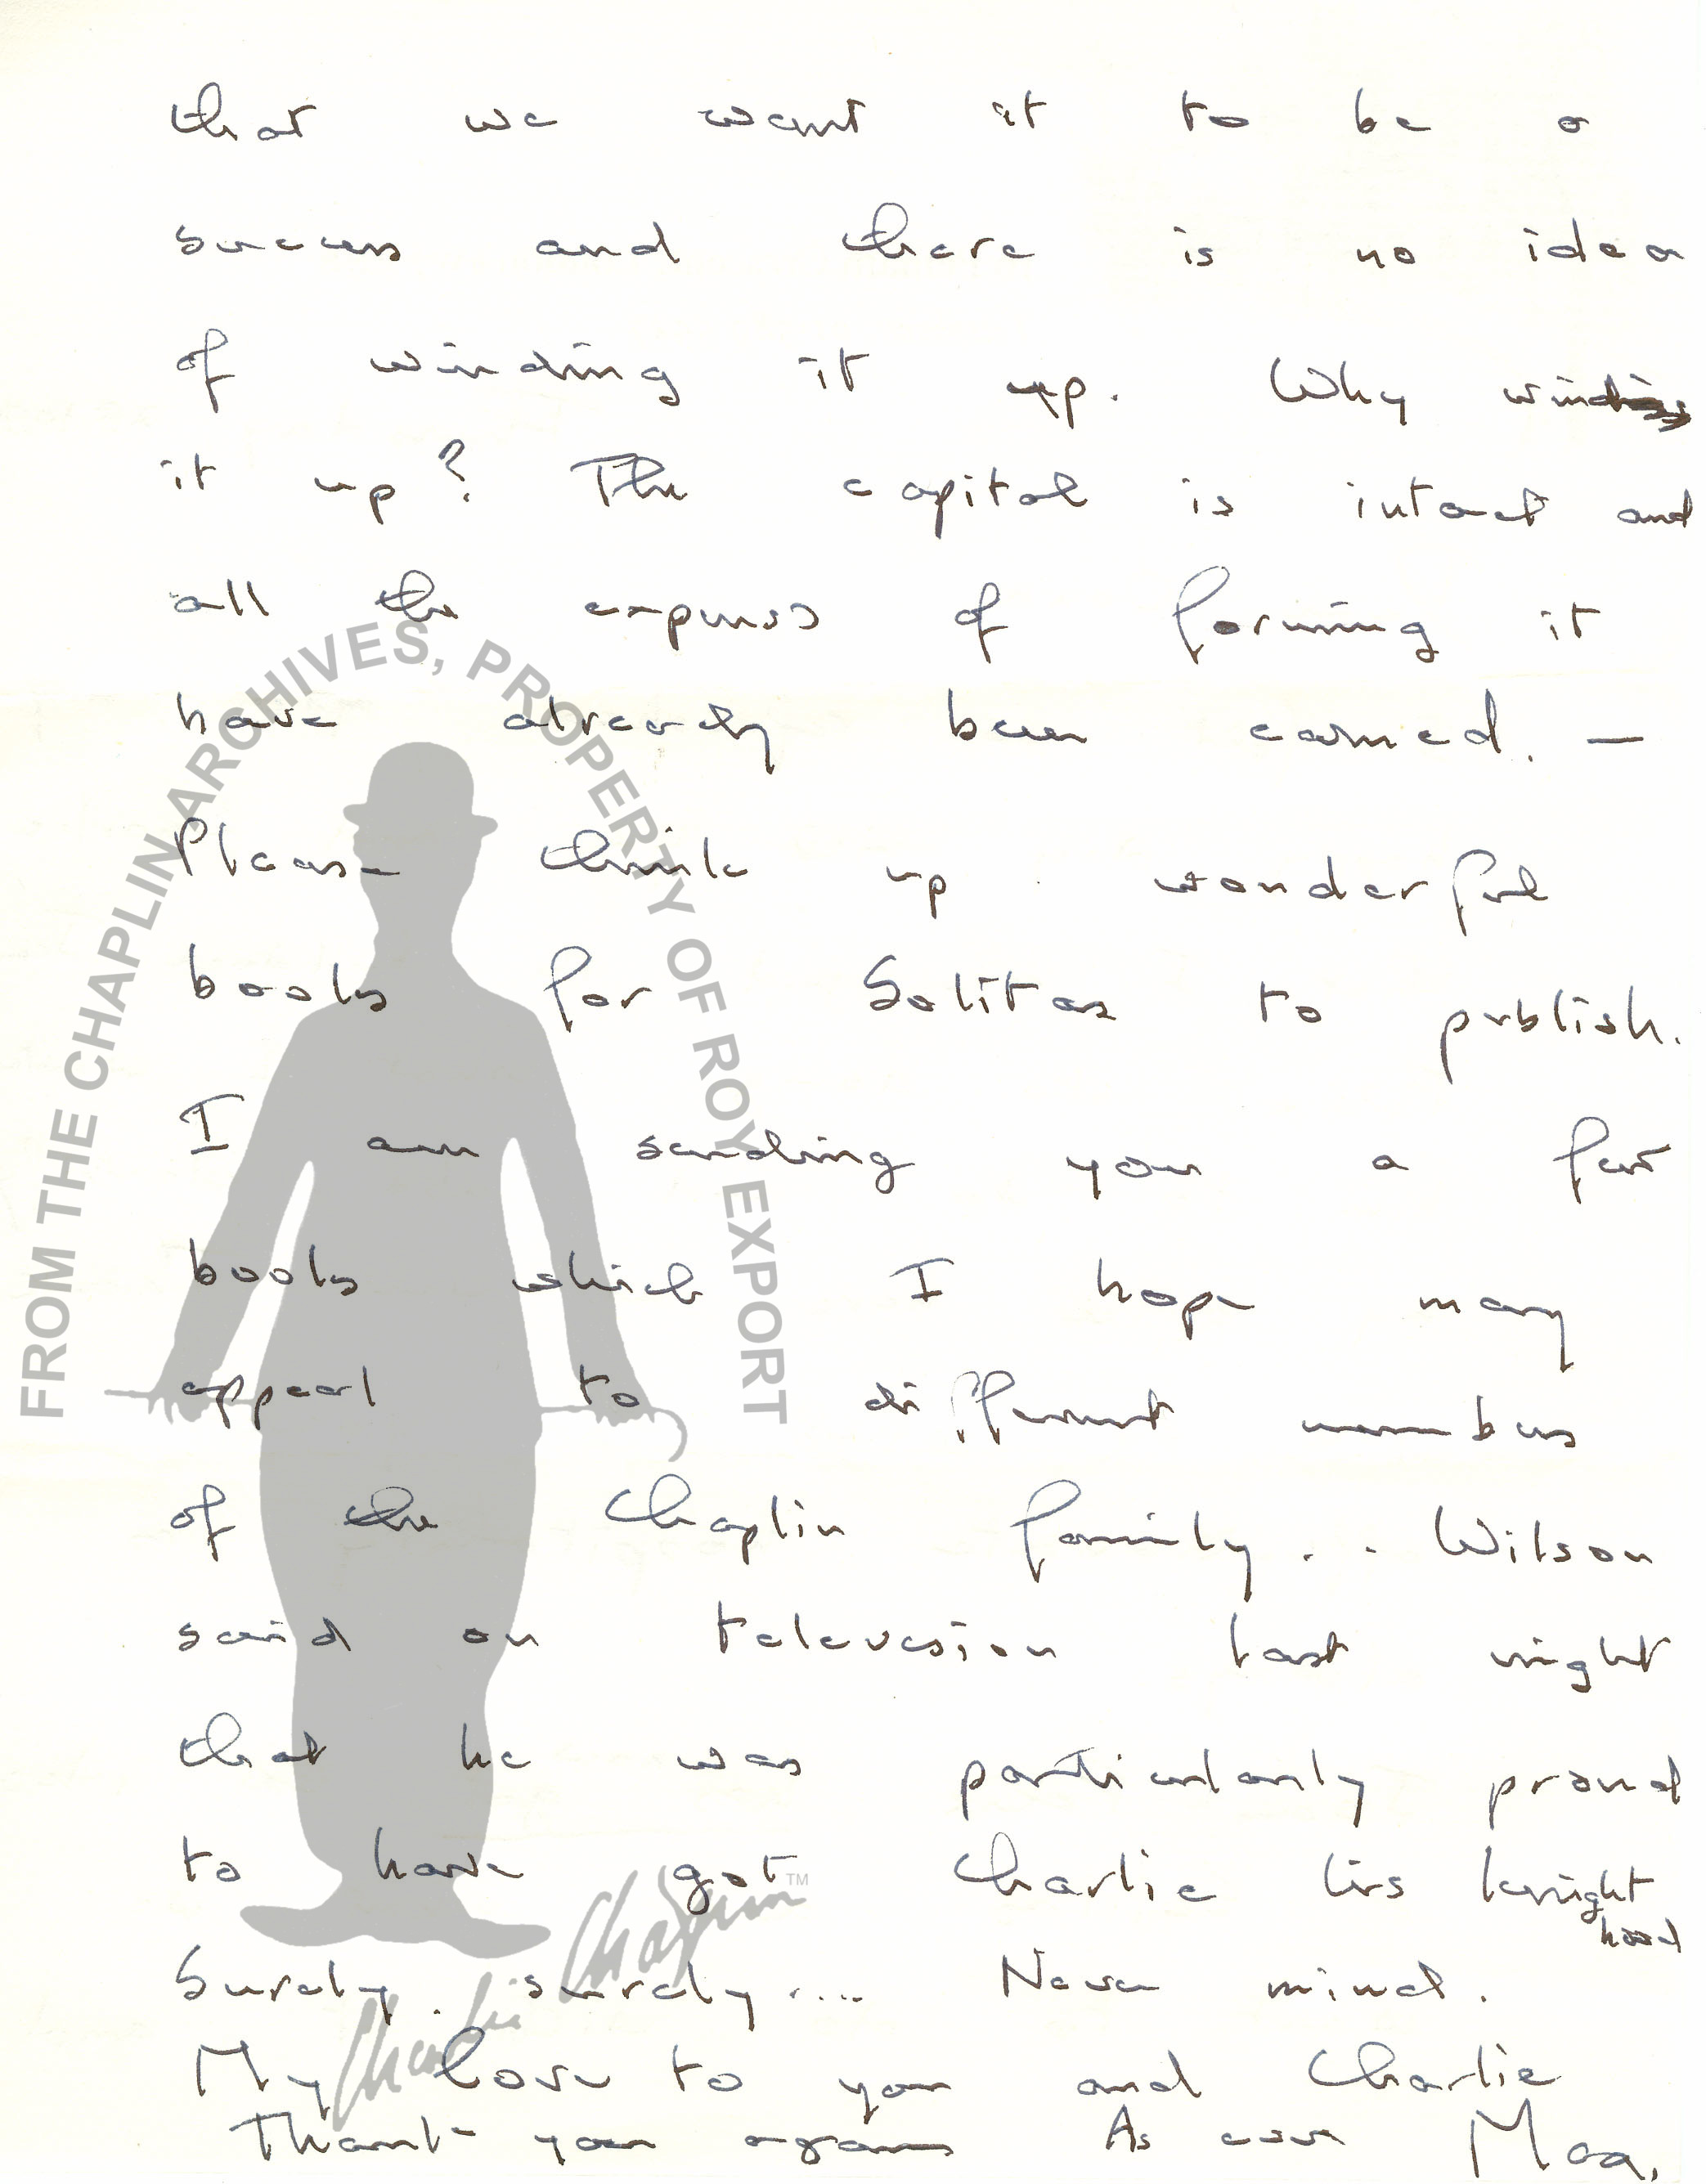 that we want it to be a
success and there is no idea
of winding it up. Why wind
it up? The capital is intact and
all the expenses of forming it
have already been earned. —
Please think up wonderful
books for Solitas to publish.
I am sending you a few
books which I hope may
appeal to different members
of the Chaplin family. . Wilson
said on television last night
that he was particularly proud
to have got Charlie his knight
hood
Surely. surely.... Never mind.
My love to you and Charlie
Thank you again As ever Max.
FROM THE CHAPLIN ARCHIVES, PROPERTY OF ROY EXPORT
Charlie Chaplin™